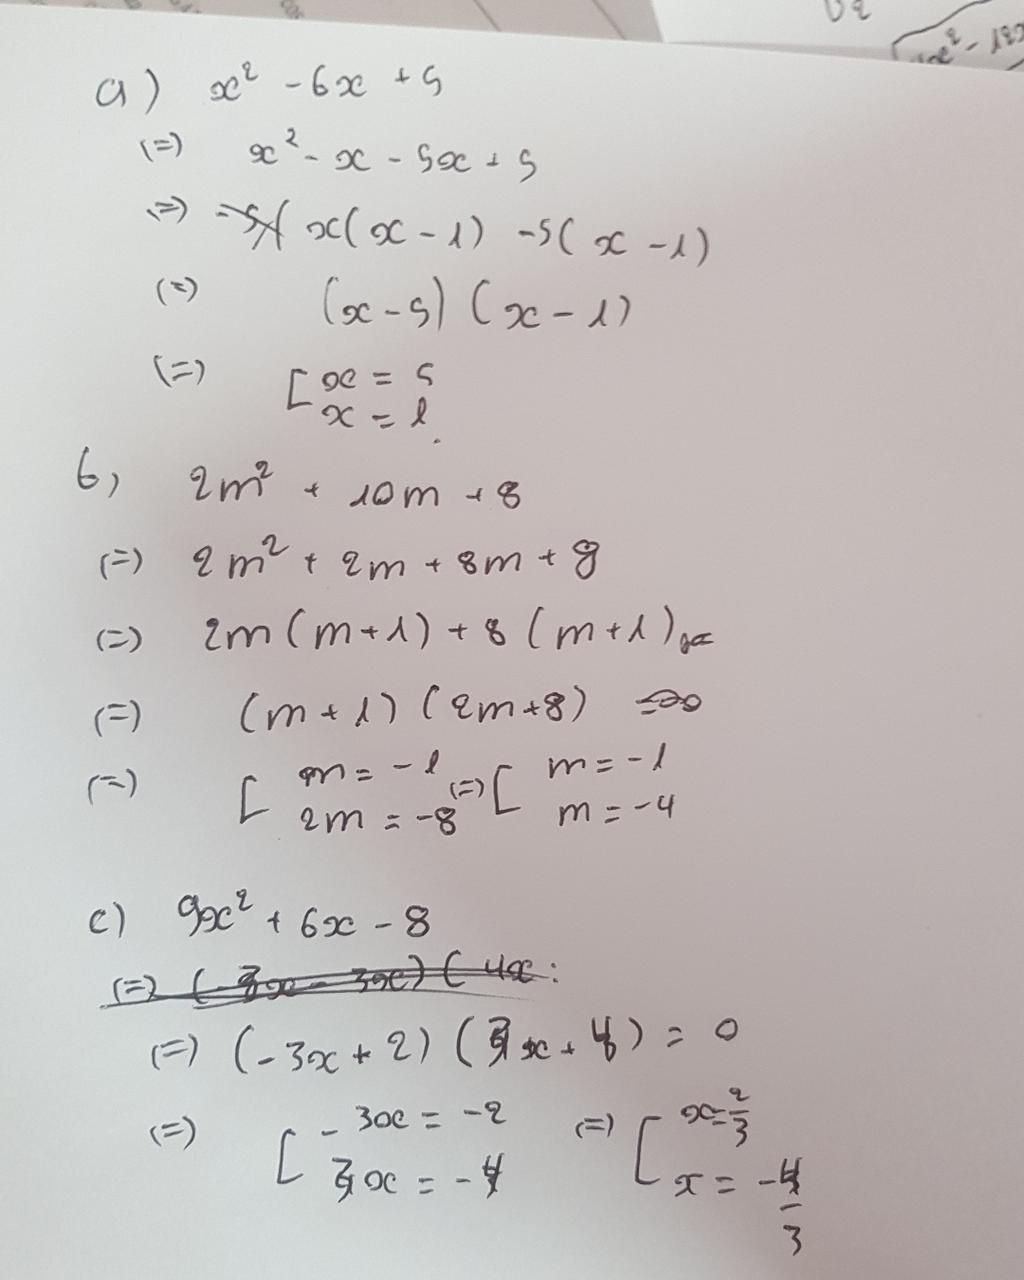 a) x² - 6x + 5
(=) x² - x - 5x + 5
(=) x(x - 1) - 5(x - 1)
(=) (x - 5) (x - 1)
(=) [ x = 5
x = 1.
b, 2m² + 10m + 8
(=) 2m² + 2m + 8m + 8
(=) 2m (m + 1) + 8 (m + 1)
(=) (m + 1) (2m + 8)
(=) [ m = -1 (=) [ m = -1
2m = -8 m = -4
c) 9x² + 6x - 8
(=) (-3x + 2) (3x + 4) = 0
(=) [ -3x = -2 (=) [ x = 2/3
3x = -4 x = -4/3